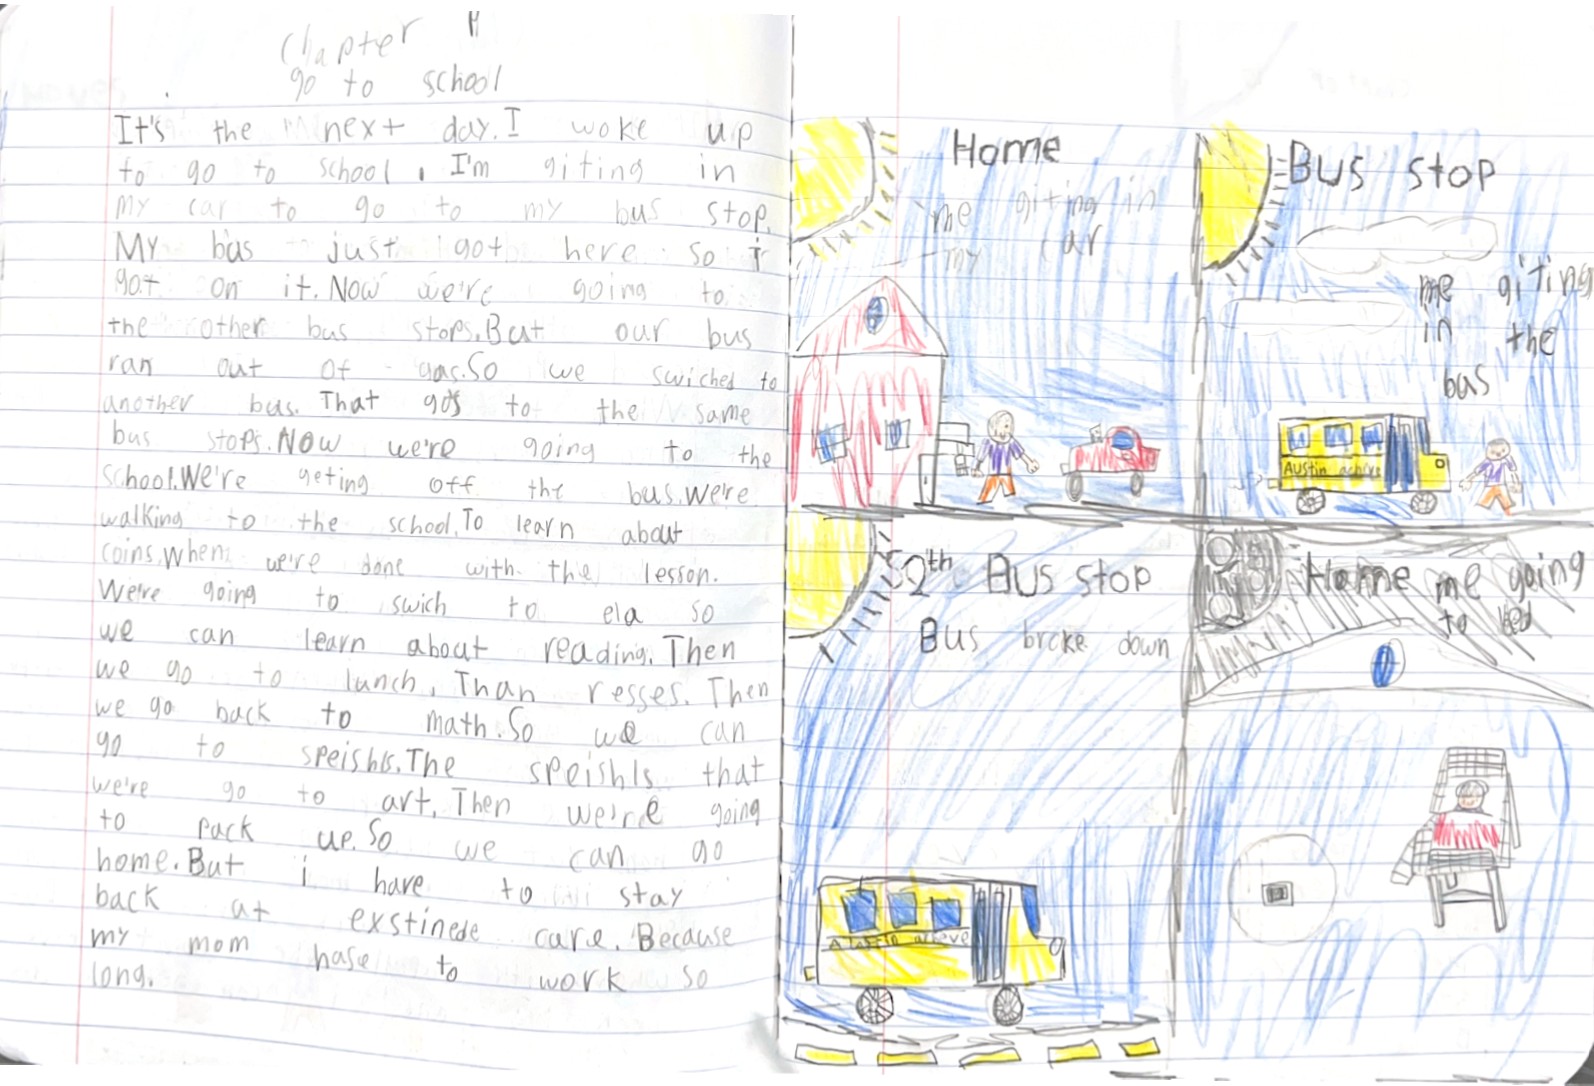 Chapter
go to school
It's the next day. I woke up
to go to school. I'm giting in
my car to go to my bus stop.
My bus just got here so i
got on it. Now we're going to
the other bus stops. But our bus
ran out of gas. So we swiched to
another bus. That gos to the same
bus stops. Now we're going to the
school. We're geting off the bus. We're
walking to the school. To learn about
coins. When we're done with the lesson.
We're going to swich to ela so
we can learn about reading. Then
we go to lunch. Than resses. Then
we go back to math. So we can
go to speishls. The speishls that
we're go to art. Then we're going
to pack up. So we can go
home. But i have to stay
back at exstinede care. Because
my mom hase to work so
long.
Home
me giting in
my car
Bus stop
me giting
in the
bus
Austin
2th Bus stop
Bus broke down
Austin
Home me going
to bed